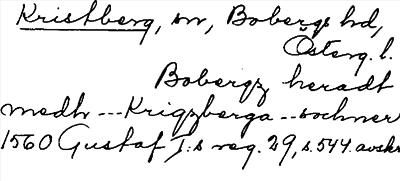 Kristberg, sn, Bobergs hd,
Österg. l.
Bobergz heradt
medh --- Krigzberga -- sochner
1560 Gustaf I:s reg. 29, s. 544. avskr